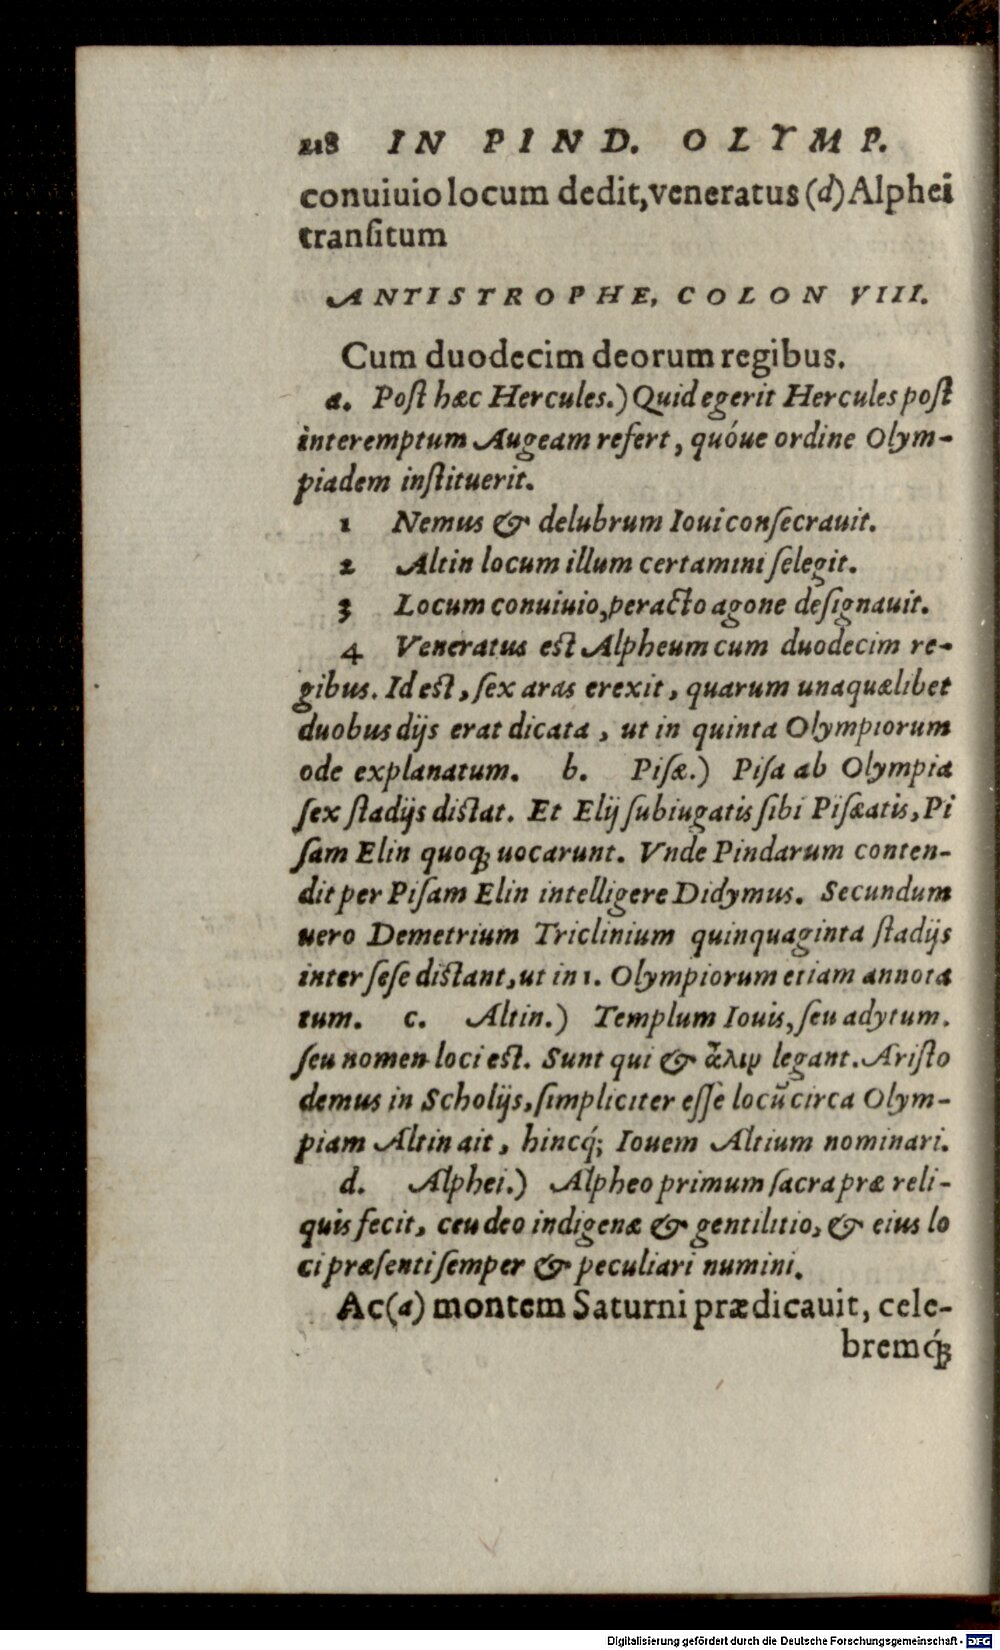 218 IN PIND. OLYMP.
conuiuio locum dedit, veneratus (d) Alphei
transitum
ANTISTROPHE, COLON VIII.
Cum duodecim deorum regibus.
a. Post hæc Hercules.) Quid egerit Hercules post
interemptum Augeam refert, quóue ordine Olym-
piadem instituerit.
1 Nemus & delubrum Ioui consecrauit.
2 Altin locum illum certamini selegit.
3 Locum conuiuio, peracto agone designauit.
4 Veneratus est Alpheum cum duodecim re-
gibus. Id est, sex aras erexit, quarum unaquælibet
duobus dijs erat dicata, ut in quinta Olympiorum
ode explanatum. b. Pisæ.) Pisa ab Olympia
sex stadijs distat. Et Elij subiugatis sibi Pisæatis, Pi
sam Elin quoq; uocarunt. Vnde Pindarum conten-
dit per Pisam Elin intelligere Didymus. Secundum
uero Demetrium Triclinium quinquaginta stadijs
inter sese distant, ut in 1. Olympiorum etiam annota
tum. c. Altin.) Templum Iouis, seu adytum.
seu nomen loci est. Sunt qui & ἄλιν legant. Aristo
demus in Scholijs, simpliciter esse locũ circa Olym-
piam Altin ait, hincq́; Iouem Altium nominari.
d. Alphei.) Alpheo primum sacra præ reli-
quis fecit, ceu deo indigenæ & gentilitio, & eius lo
ci præsenti semper & peculiari numini.
Ac (a) montem Saturni prædicauit, cele-
bremq́;
Digitalisierung gefördert durch die Deutsche Forschungsgemeinschaft - DFG